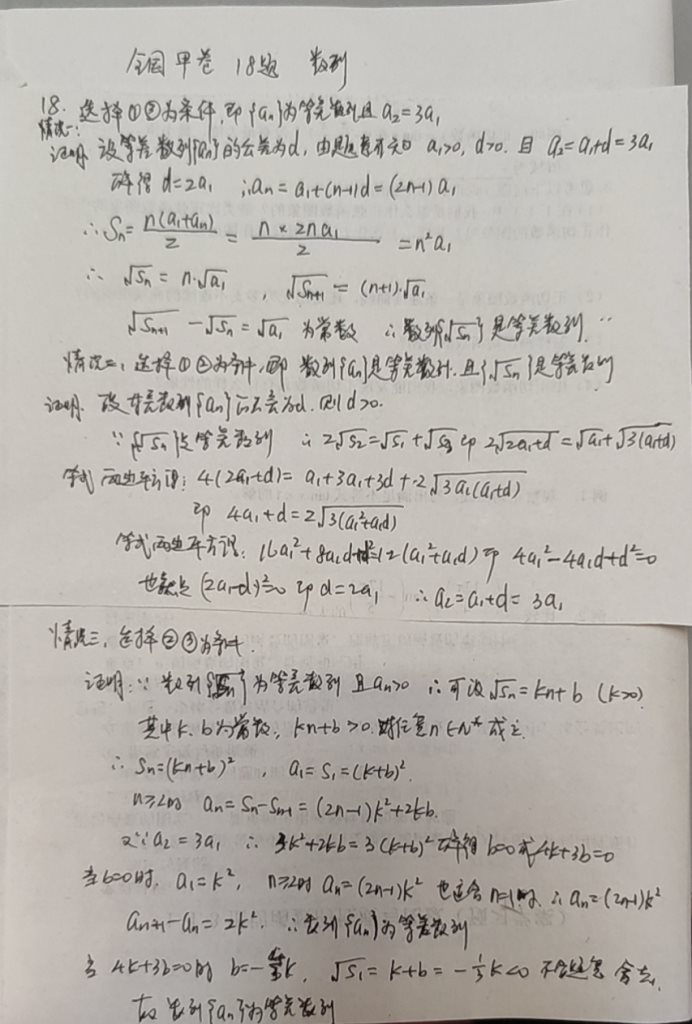 全国甲卷 18题 数列
18. 选择①②为条件,即{an}为等差数列且a₂=3a₁
情况一:
证明. 设等差数列{an}的公差为d, 由题意可知 a₁>0, d>0. 且 a₂=a₁+d=3a₁
解得 d=2a₁ ∴an=a₁+(n-1)d=(2n-1)a₁
∴Sn=n(a₁+an)/2=n×2na₁/2=n²a₁
∴ √Sn=n·√a₁, √Sn+1=(n+1)·√a₁
√Sn+1-√Sn=√a₁ 为常数 ∴数列{√Sn}是等差数列.
情况二, 选择①③为条件,即 数列{an}是等差数列.且{√Sn}是等差数列
证明. 设等差数列{an}公差为d.则d>0.
∵{√Sn}是等差数列 ∴ 2√S₂=√S₁+√S₃ 即 2√2a₁+d=√a₁+√3(a₁+d)
等式两边平方得: 4(2a₁+d)=a₁+3a₁+3d+2√3a₁(a₁+d)
即 4a₁+d=2√3(a₁²+a₁d)
等式两边平方得: 16a₁²+8a₁d+d²=12(a₁²+a₁d) 即 4a₁²-4a₁d+d²=0
也就是(2a₁-d)²=0 即d=2a₁ ∴a₂=a₁+d=3a₁
情况三, 选择②③为条件.
证明:∵ 数列{√Sn}为等差数列 且an>0 ∴可设√Sn=kn+b (k>0)
其中k、b为常数, kn+b>0.对任意n∈N* 成立.
∴ Sn=(kn+b)², a₁=S₁=(k+b)².
n≥2时 an=Sn-Sn-1=(2n-1)k²+2kb.
又∵a₂=3a₁ ∴ 3k²+2kb=3(k+b)² 解得 b=0或4k+3b=0
当b=0时, a₁=k², n≥2时 an=(2n-1)k² 也适合n=1时. ∴an=(2n-1)k²
an+1-an=2k². ∴数列{an}为等差数列
当4k+3b=0时 b=-4/3k, √S₁=k+b=-1/3k<0 不合题意 舍去.
故 数列{an}为等差数列